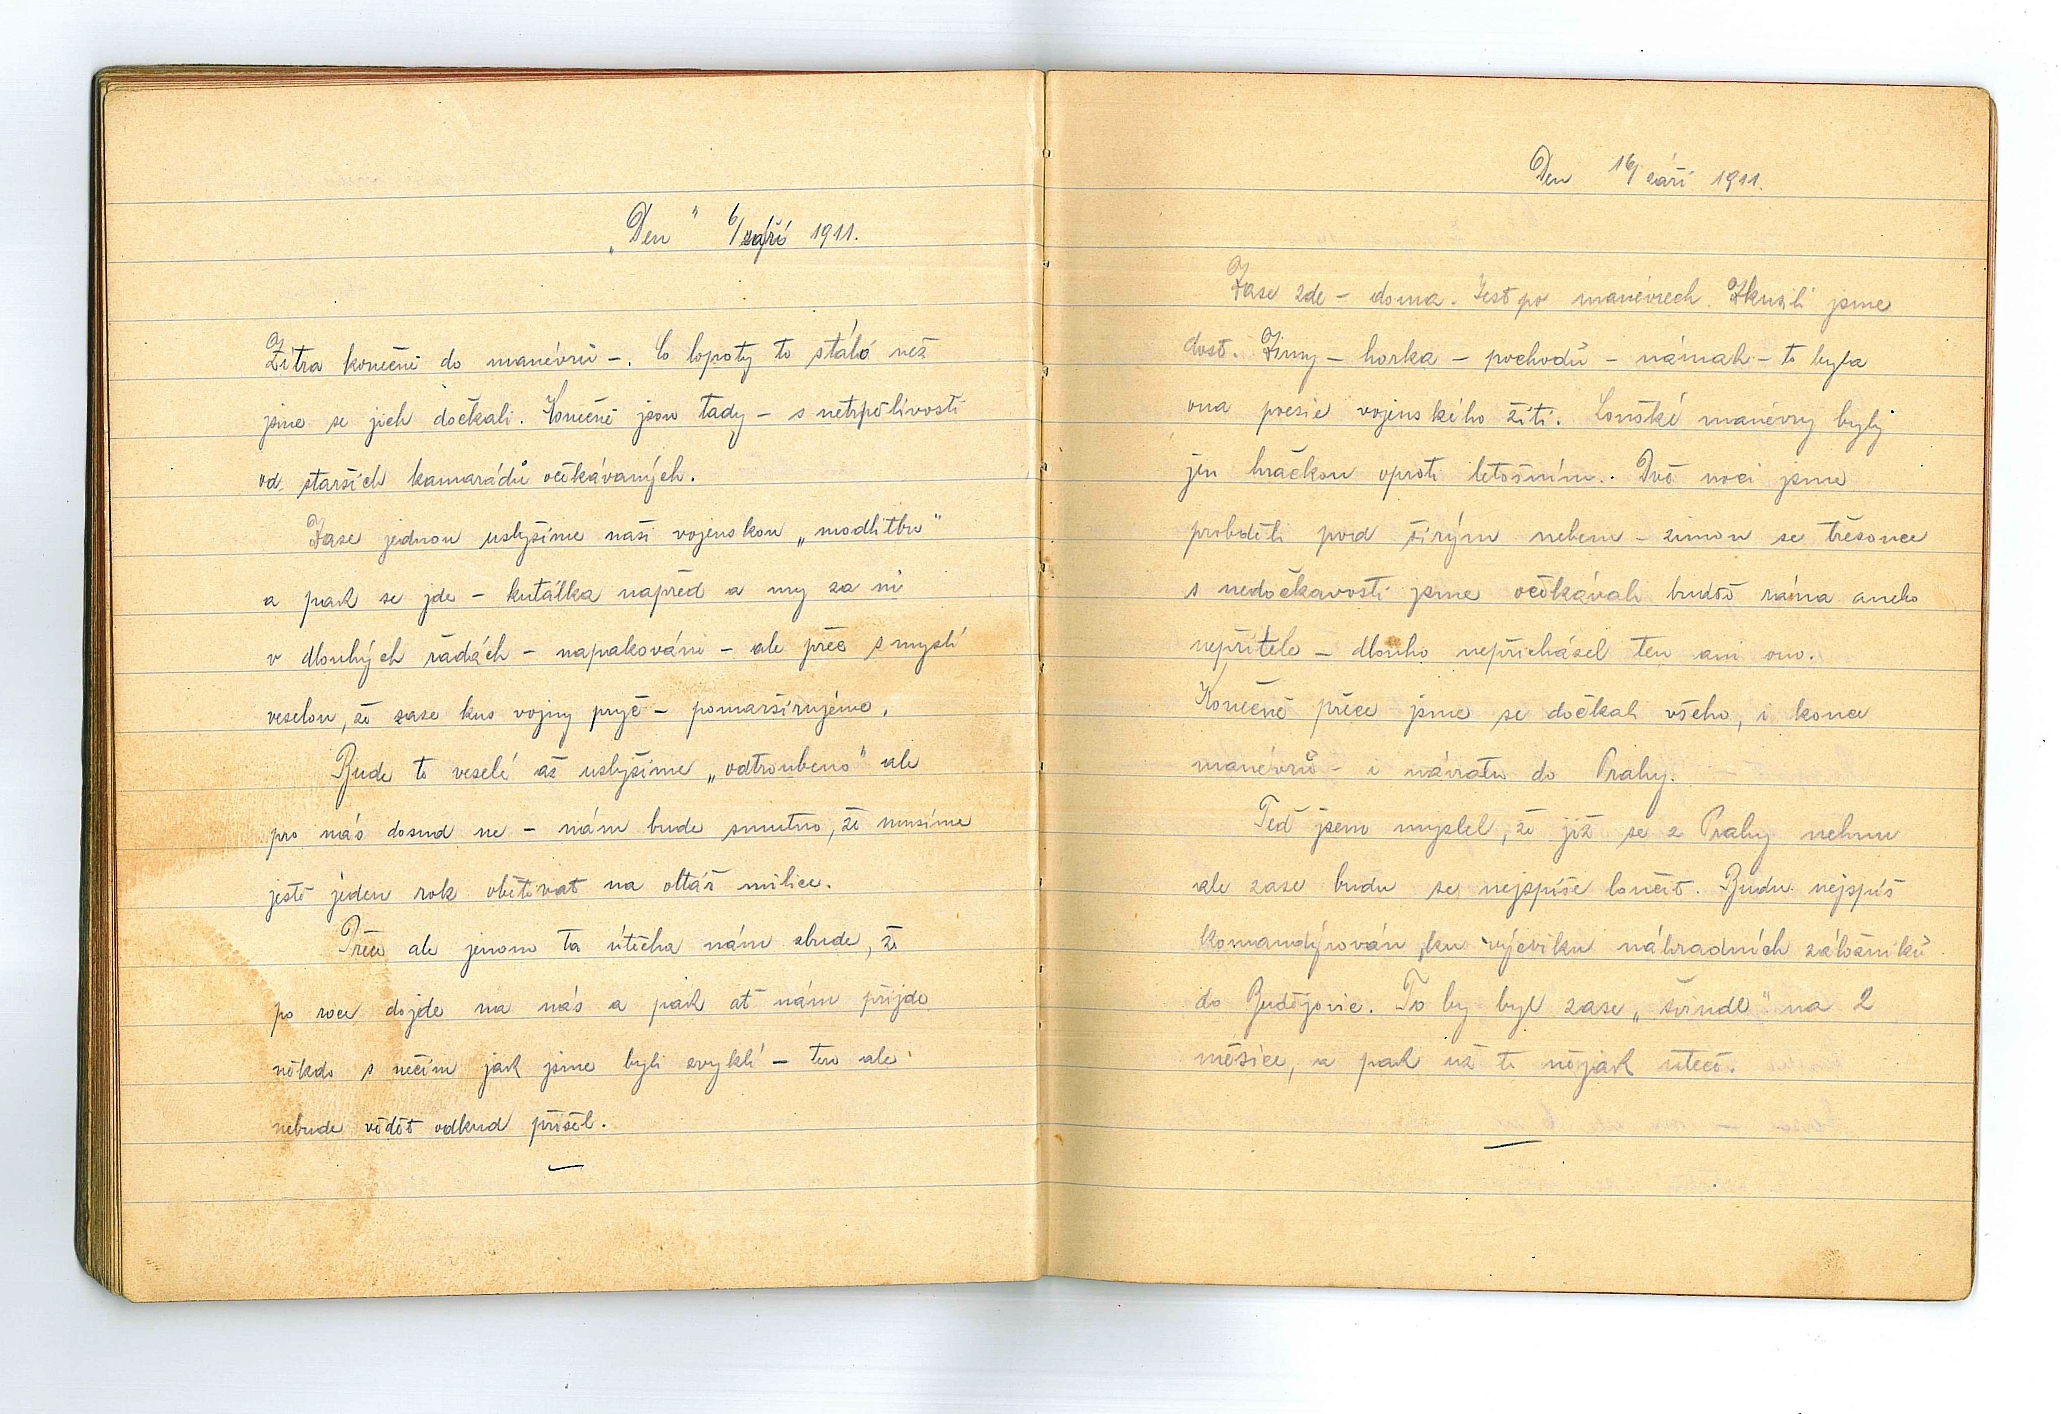 „Den" 6/září 1911.
Zítra konečně do manévrů –. Co lopoty to stálo než
jsme se jich dočkali. Konečně jsou tady – s netrpělivostí
od starších kamarádů očekávaných.
Zase jednou uslyšíme naši vojenskou „modlitbu"
a pak se jde – kutálka napřed a my za ní
v dlouhých řadách – napakováni – ale přec s myslí
veselou, že zase kus vojny pryč – pomarširujéme.
Bude to veselé až uslyšíme „odtroubeno" ale
pro nás dosud ne – nám bude smutno, že musíme
jestě jeden rok obětovat na oltář milice.
Přéce ale jenom ta útěcha nám zbude, že
po roce dojde na nás a pak ať nám přijde
někdo s něčím jak jsme byli zvyklí – ten ale
nebude vědět odkud přišel.
Den 16/září 1911.
Zase zde – doma. Jest po manévrech. Zkusili jsme
dost. Zimy – horka – pochodů – námah – to byla
ona poesie vojenského žití. Lonské manévry byly
jen hračkou oproti letošním.. Dvě noci jsme
probděli pod širým nebem – zimou se třesouce
s nedočkavostí jsme očekávali buďto rána aneb
nepřítele – dlouho nepřicházel ten ani ono.
Konečně přéce jsme se dočkali všeho, i konce
manévrů – i návratu do Prahy.
Teď jsem myslel, že již se z Prahy nehnu
ale zase budu se nejspíše loučit. Budu nejspíš
komandýrován ku výcviku náhradních záložníků
do Budějovic. To by byl zase „švindl" na 2
měsíce, a pak už to nějak uteče.